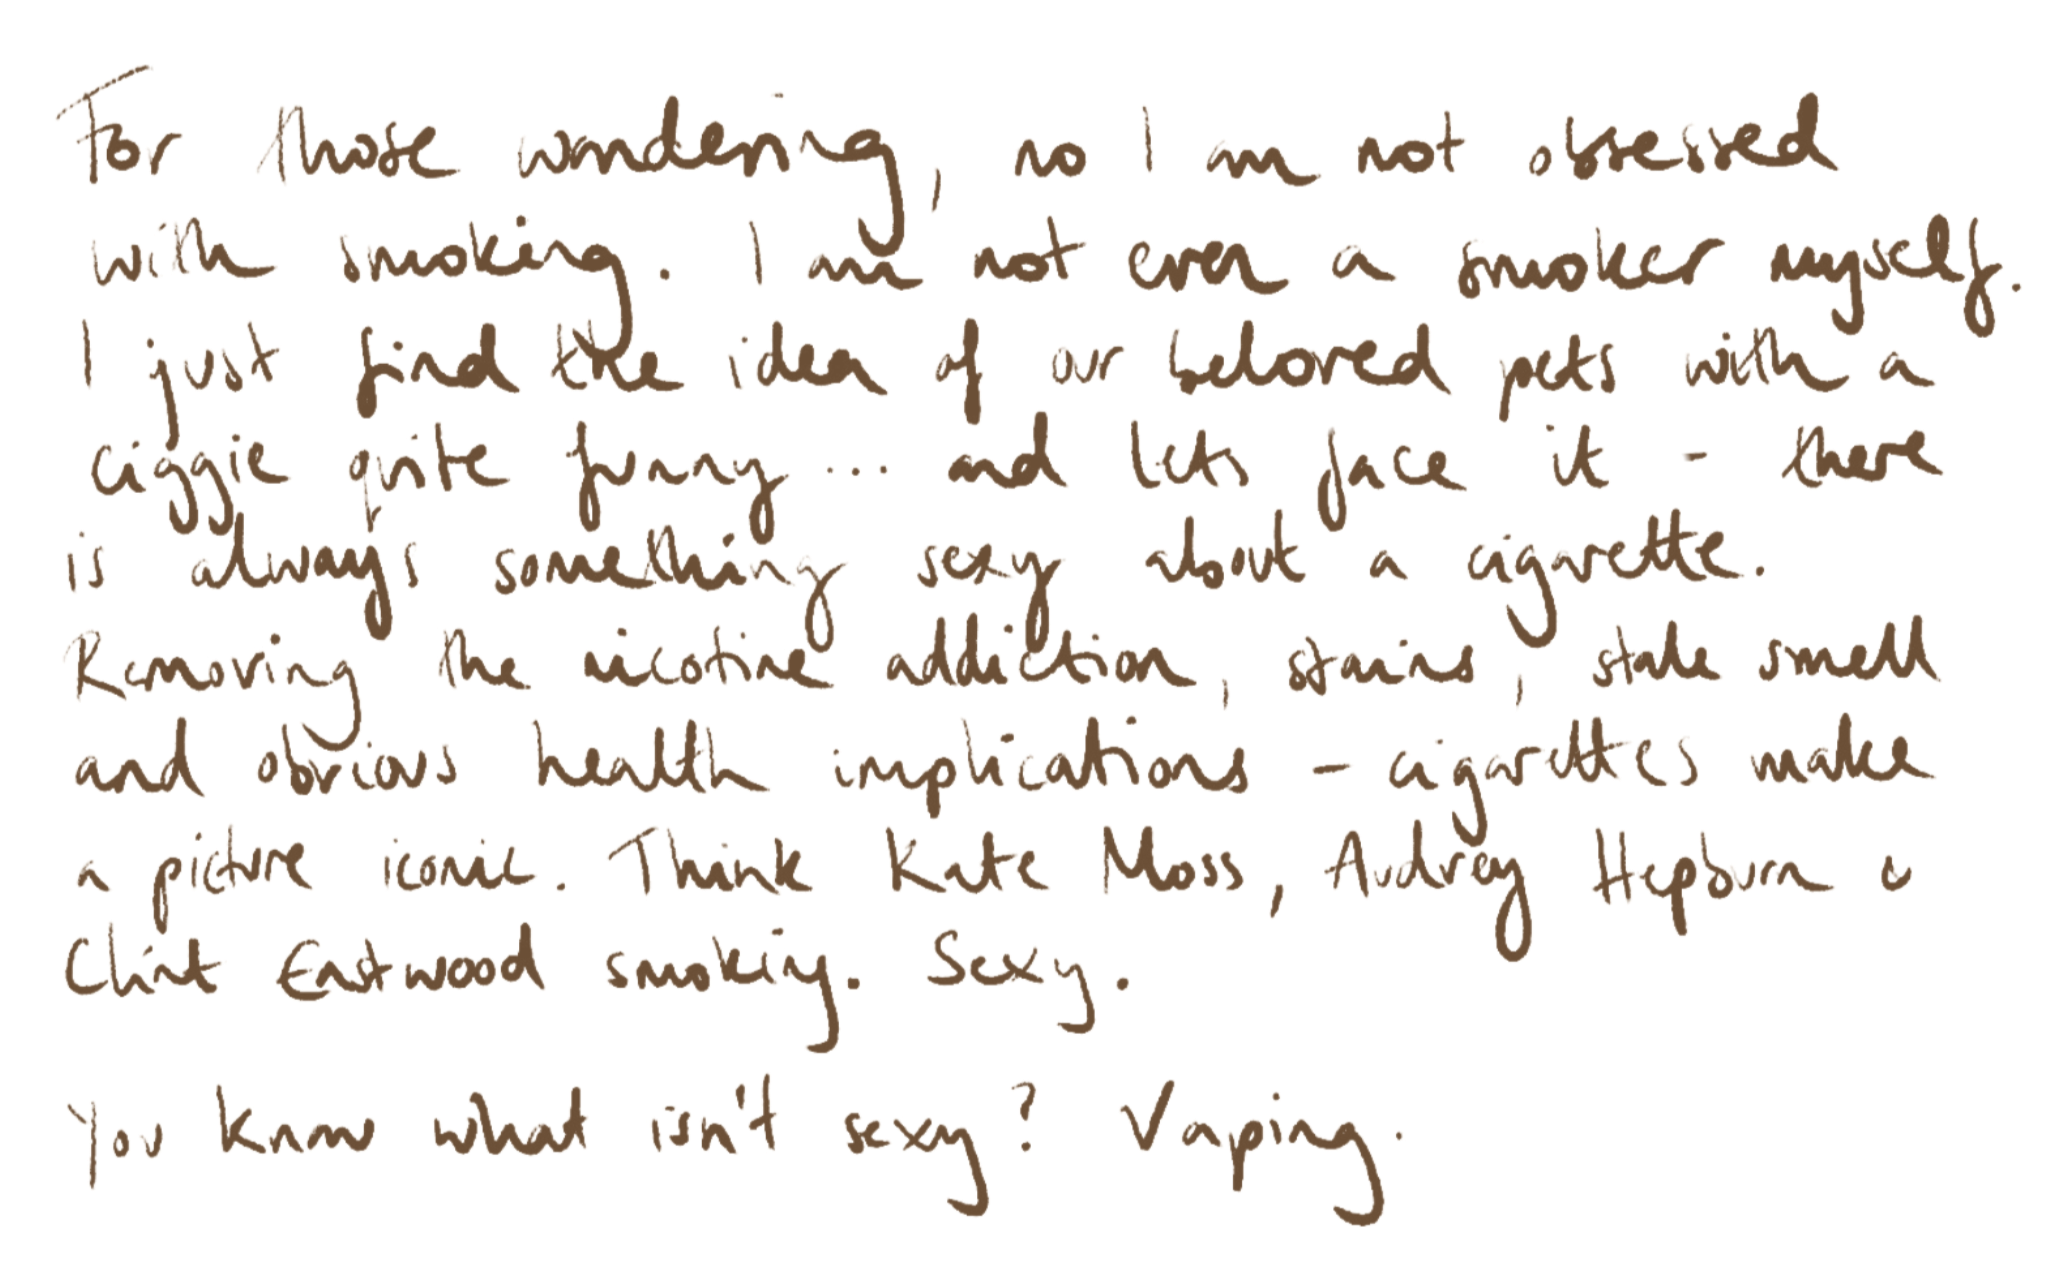 For those wondering, no I am not obsessed
with smoking. I am not even a smoker myself.
I just find the idea of our beloved pets with a
ciggie quite funny... and lets face it - there
is always something sexy about a cigarette.
Removing the nicotine addiction, stains, stale smell
and obvious health implications - cigarettes make
a picture iconic. Think Kate Moss, Audrey Hepburn &
Clint Eastwood smoking. Sexy.
You know what isn't sexy? Vaping.